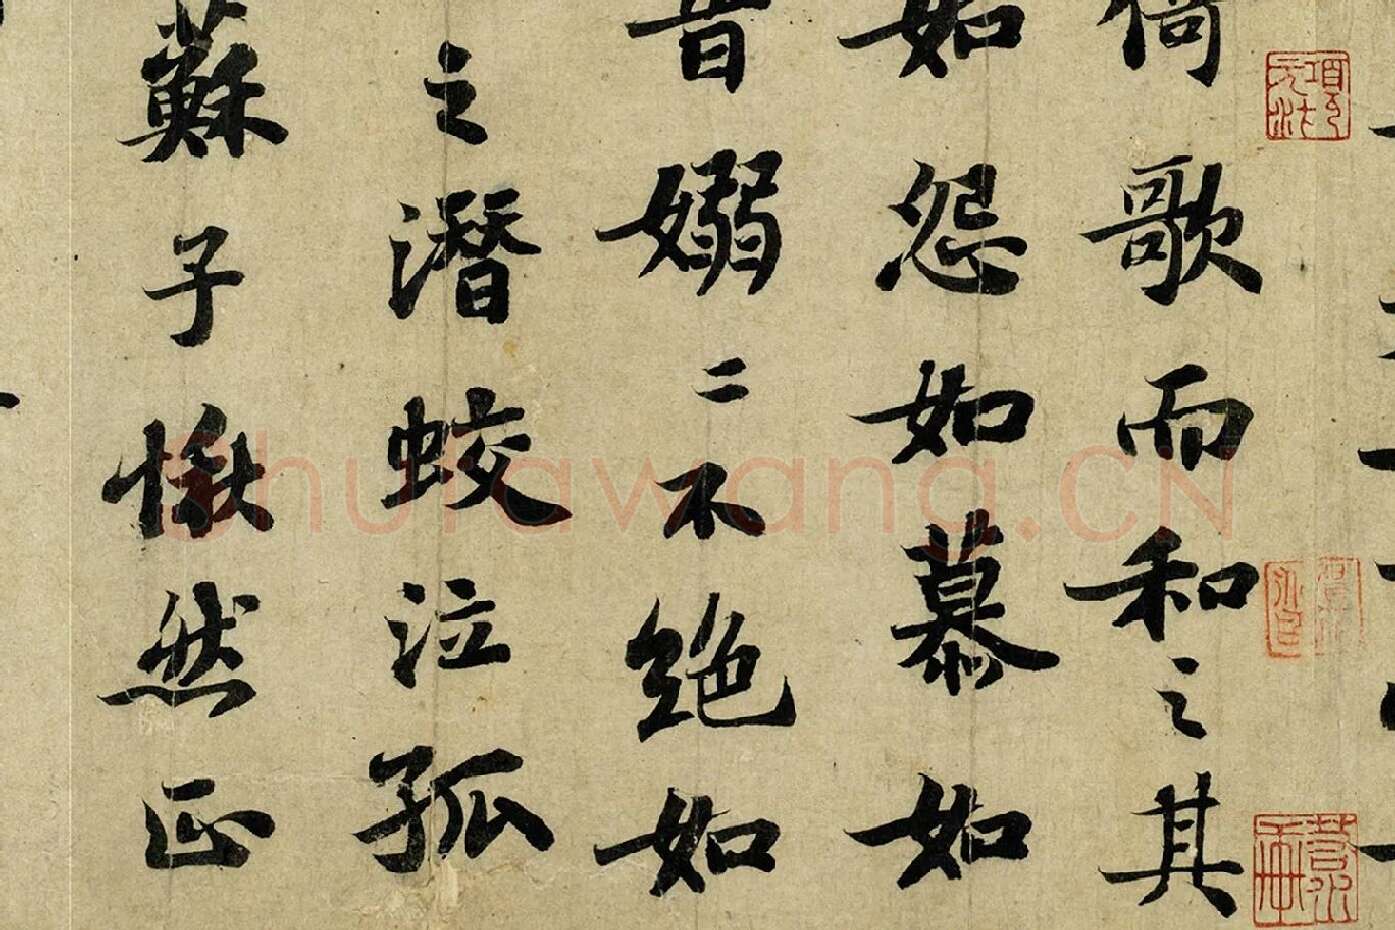 倚歌而和之其
如怨如慕如
音嫋二不絶如
之潛蛟泣孤
蘇子愀然正
shufawang.CN
項元汴